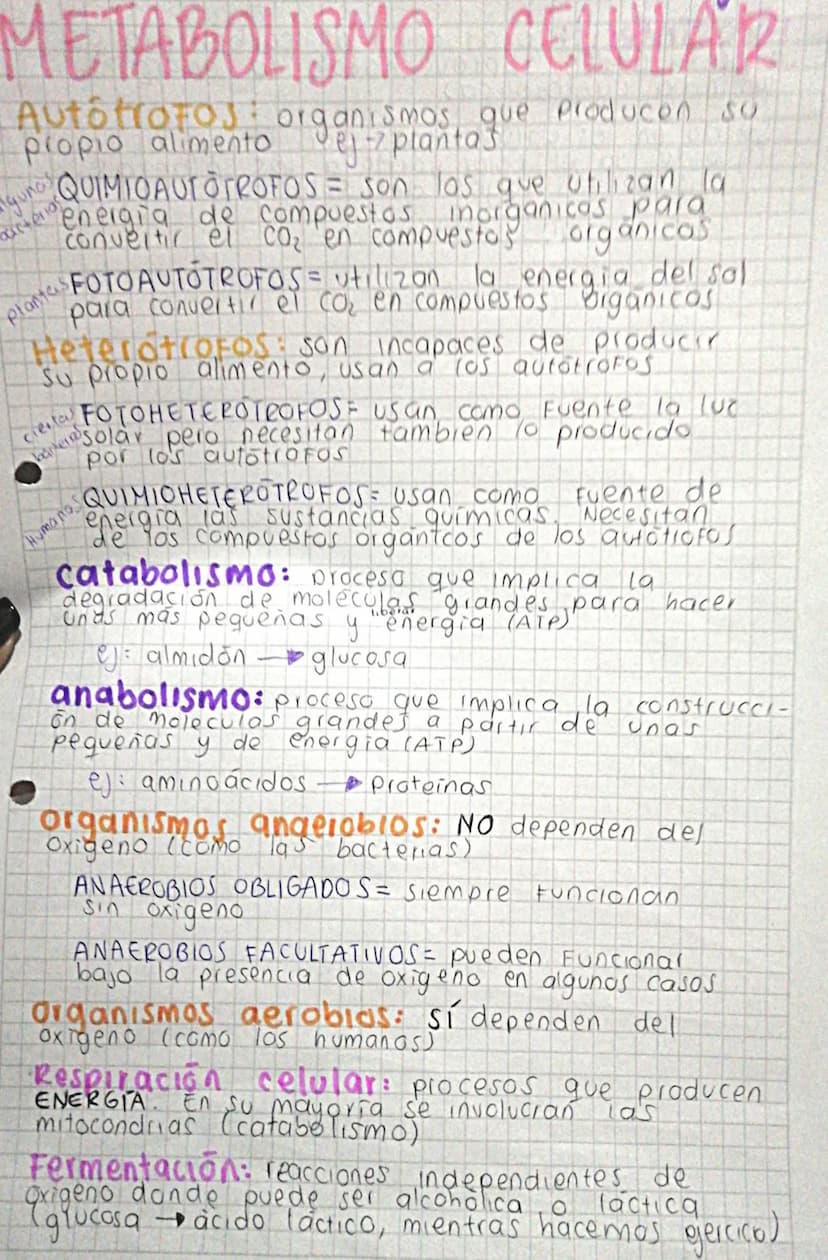 METABOLISMO CELULAR
Autótrofos: organismos que producen su
propio alimento ej → plantas
algunas bacterias
QUIMIOAUTÓTROFOS = son los que utilizan la
energía de compuestos inorgánicos para
convertir el CO₂ en compuestos orgánicos
plantas
FOTOAUTÓTROFOS = utilizan la energía del sol
para convertir el CO₂ en compuestos orgánicos
Heterótrofos: son incapaces de producir
su propio alimento, usan a los autótrofos
ciertas bacterias
FOTOHETERÓTROFOS = usan como fuente la luz
solar pero necesitan también lo producido
por los autótrofos
Humanos
QUIMIOHETERÓTROFOS = usan como fuente de
energía las sustancias químicas. Necesitan
de los compuestos orgánicos de los autótrofos
catabolismo: proceso que implica la
degradación de moléculas grandes para hacer
unas más pequeñas y liberar energía (ATP)
ej: almidón → glucosa
anabolismo: proceso que implica la construcci-
ón de moléculas grandes a partir de unas
pequeñas y de energía (ATP)
ej: aminoácidos → proteínas
organismos anaerobios: NO dependen del
oxígeno (como las bacterias)
ANAEROBIOS OBLIGADOS = siempre funcionan
sin oxígeno
ANAEROBIOS FACULTATIVOS = pueden funcionar
bajo la presencia de oxígeno en algunos casos
organismos aerobios: SÍ dependen del
oxígeno (como los humanos)
Respiración celular: procesos que producen
ENERGÍA. En su mayoría se involucran las
mitocondrias (catabolismo)
Fermentación: reacciones independientes de
oxígeno donde puede ser alcohólica o láctica
(glucosa → ácido láctico, mientras hacemos ejercicio)